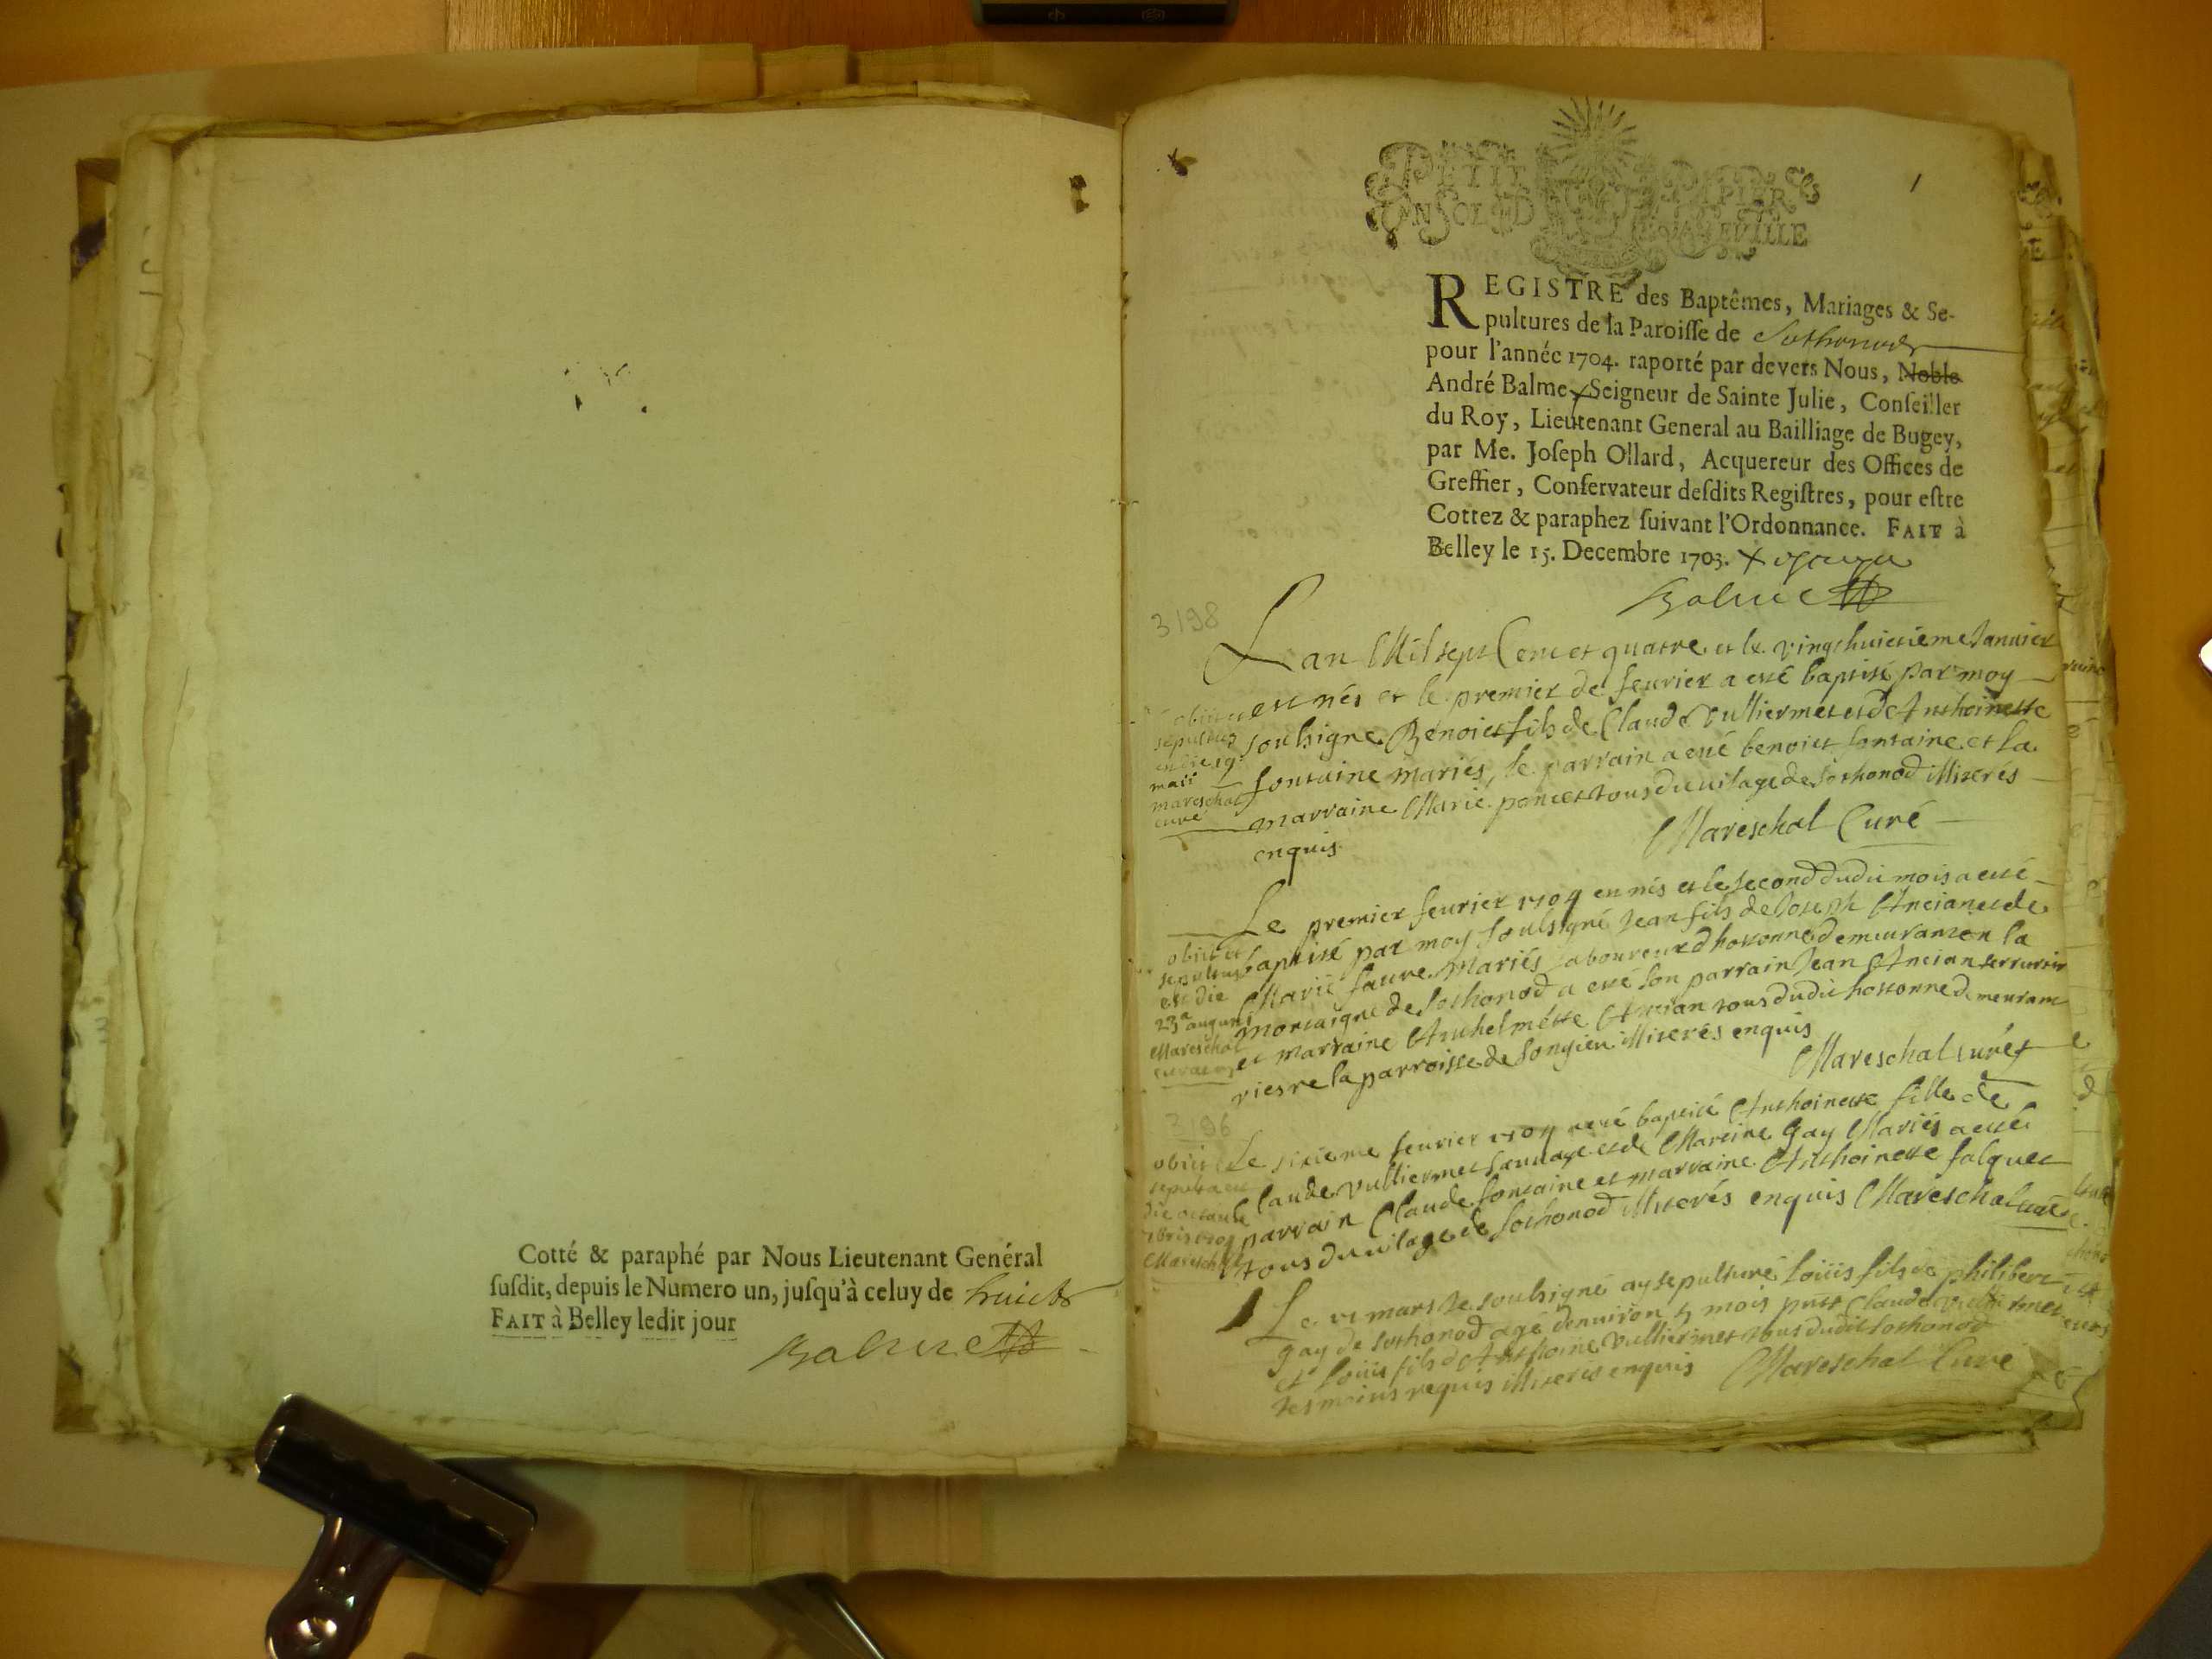 Cotté & paraphé par Nous Lieutenant Genéral
susdit, depuis le Numero un, jusqu'à celuy de huict
FAIT à Belley ledit jour
Balme
1
PETIT PAPIER
UN SOL LA FEUILLE
REGISTRE des Baptêmes, Mariages & Se-
pultures de la Paroisse de Sothonod
pour l'année 1704. raporté par devers Nous, Noble
André Balme Seigneur de Sainte Julie, Conseiller
du Roy, Lieutenant General au Bailliage de Bugey,
par Me. Joseph Ollard, Acquereur des Offices de
Greffier, Conservateur desdits Registres, pour estre
Cottez & paraphez suivant l'Ordonnance. FAIT à
Belley le 15. Decembre 1703.
Balme
3198
Lan Mil sept Cent et quatre et le vingt huictieme Janvier
est nés et le premier de feurier a esté baptisé par moy
soubsigné Benoict fils de Claude Vulliermet et de Anthoinette
fontaine mariés, le parrain a esté benoict fontaine et la
marraine Marie poncet tous du vilage de Sothonod illiterés
enquis
Mareschal Curé
obiit et
sepultus
est die 19
maii
mareschal
curé
Le premier feurier 1704 est nés et le second dudit mois a esté
baptisé par moy soubsigné Jean fils de Joseph Ancian et de
Marie faure Mariés laboureur d hostonne demeurant en la
montaigne de Sothonod a esté son parrain Jean Ancian serrurier
et marraine Anthelmette Ancian tous dudit hostonne demeurant
riesre la parroisse de Songieu illiterés enquis
Mareschal curé
obiit et
sepultus
est die
23a augusti
Mareschal
3196
Le sixieme feurier 1704 a esté baptisé Anthoinette fille de
Claude Vulliermet sauuage et de Martine Gay Mariés a esté
parrain Claude fontaine et marraine Anthoinette falquet
tous du vilage de Sothonod illiterés enquis Mareschal curé
obiit
sepulta est
die octaua
Mareschal
Le vi mars Je soubsigné ay sepulturé Loüis fils de philibert
gay de Sothonod agé denuiron 5 mois pnts Claude Vulliermet
et Loüis fils d Anthoine Vulliermet tous dudit Sothonod
tesmoins requis illiterés enquis Mareschal Curé